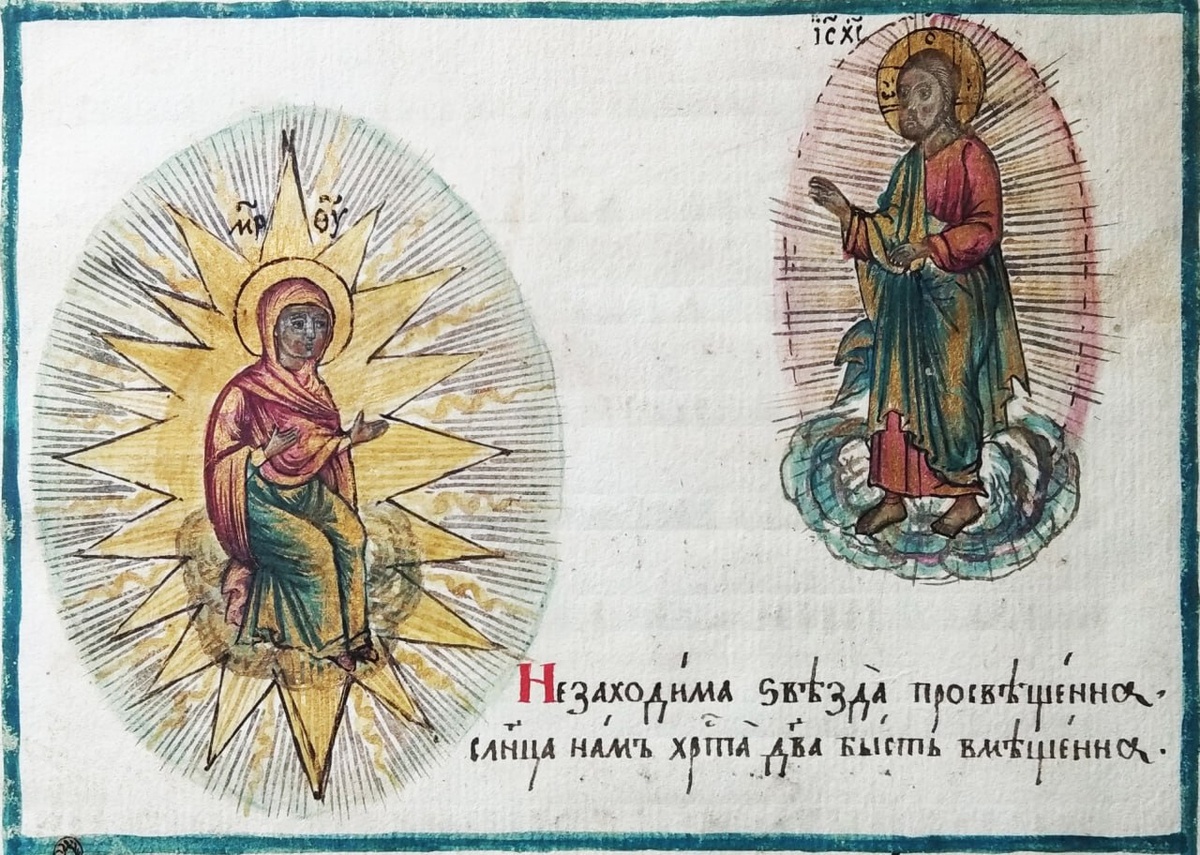 І҃С Х҃С
М҃Р Ѳ҃У
Незаходи́ма ѕвѣзда̀ просвѣще́нна.
сл҃нца на́мъ хр҃та̀ дв҃а бы́сть вмѣще́нна.